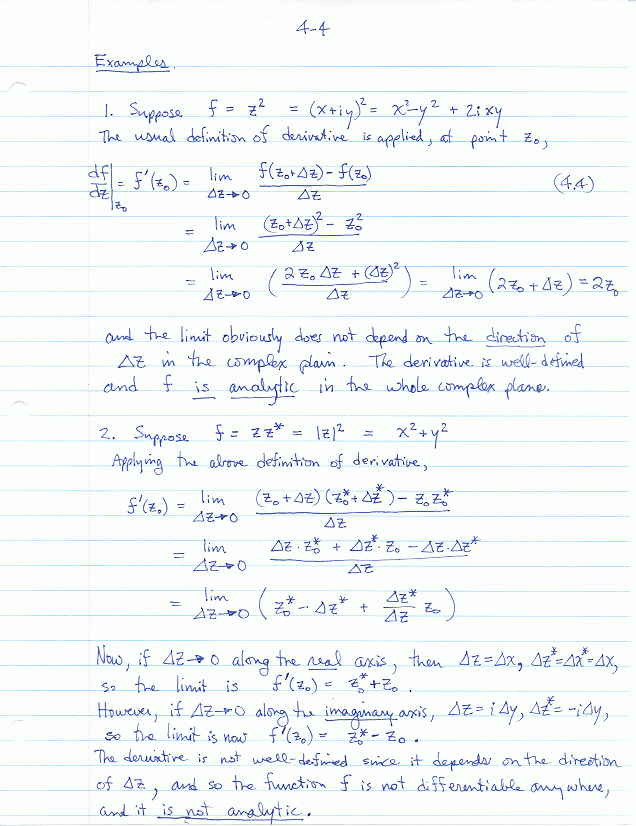 4-4
Examples.
1. Suppose f = z² = (x+iy)² = x²-y² + 2ixy
The usual definition of derivative is applied, at point z₀,
df/dz|z₀ = f'(z₀) = lim Δz→0 (f(z₀+Δz) - f(z₀))/Δz (4.4)
= lim Δz→0 ((z₀+Δz)² - z₀²)/Δz
= lim Δz→0 ((2z₀Δz + (Δz)²)/Δz) = lim Δz→0 (2z₀ + Δz) = 2z₀
and the limit obviously does not depend on the direction of
Δz in the complex plain. The derivative is well-defined
and f is analytic in the whole complex plane.
2. Suppose f = zz* = |z|² = x²+y²
Applying the above definition of derivative,
f'(z₀) = lim Δz→0 ((z₀+Δz)(z₀*+Δz*) - z₀z₀*)/Δz
= lim Δz→0 (Δz·z₀* + Δz*·z₀ - Δz·Δz*)/Δz
= lim Δz→0 (z₀* - Δz* + Δz*/Δz z₀)
Now, if Δz→0 along the real axis, then Δz=Δx, Δz*=Δx*=Δx,
so the limit is f'(z₀) = z₀*+z₀.
However, if Δz→0 along the imaginary axis, Δz=iΔy, Δz*=-iΔy,
so the limit is now f'(z₀) = z₀*-z₀.
The derivative is not well-defined since it depends on the direction
of Δz, and so the function f is not differentiable anywhere,
and it is not analytic.